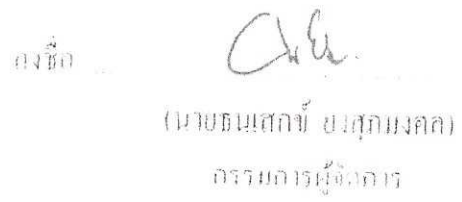 ลงชื่อ
(นายธนเสกข์ ยงสุภมงคล)
กรรมการผู้จัดการ